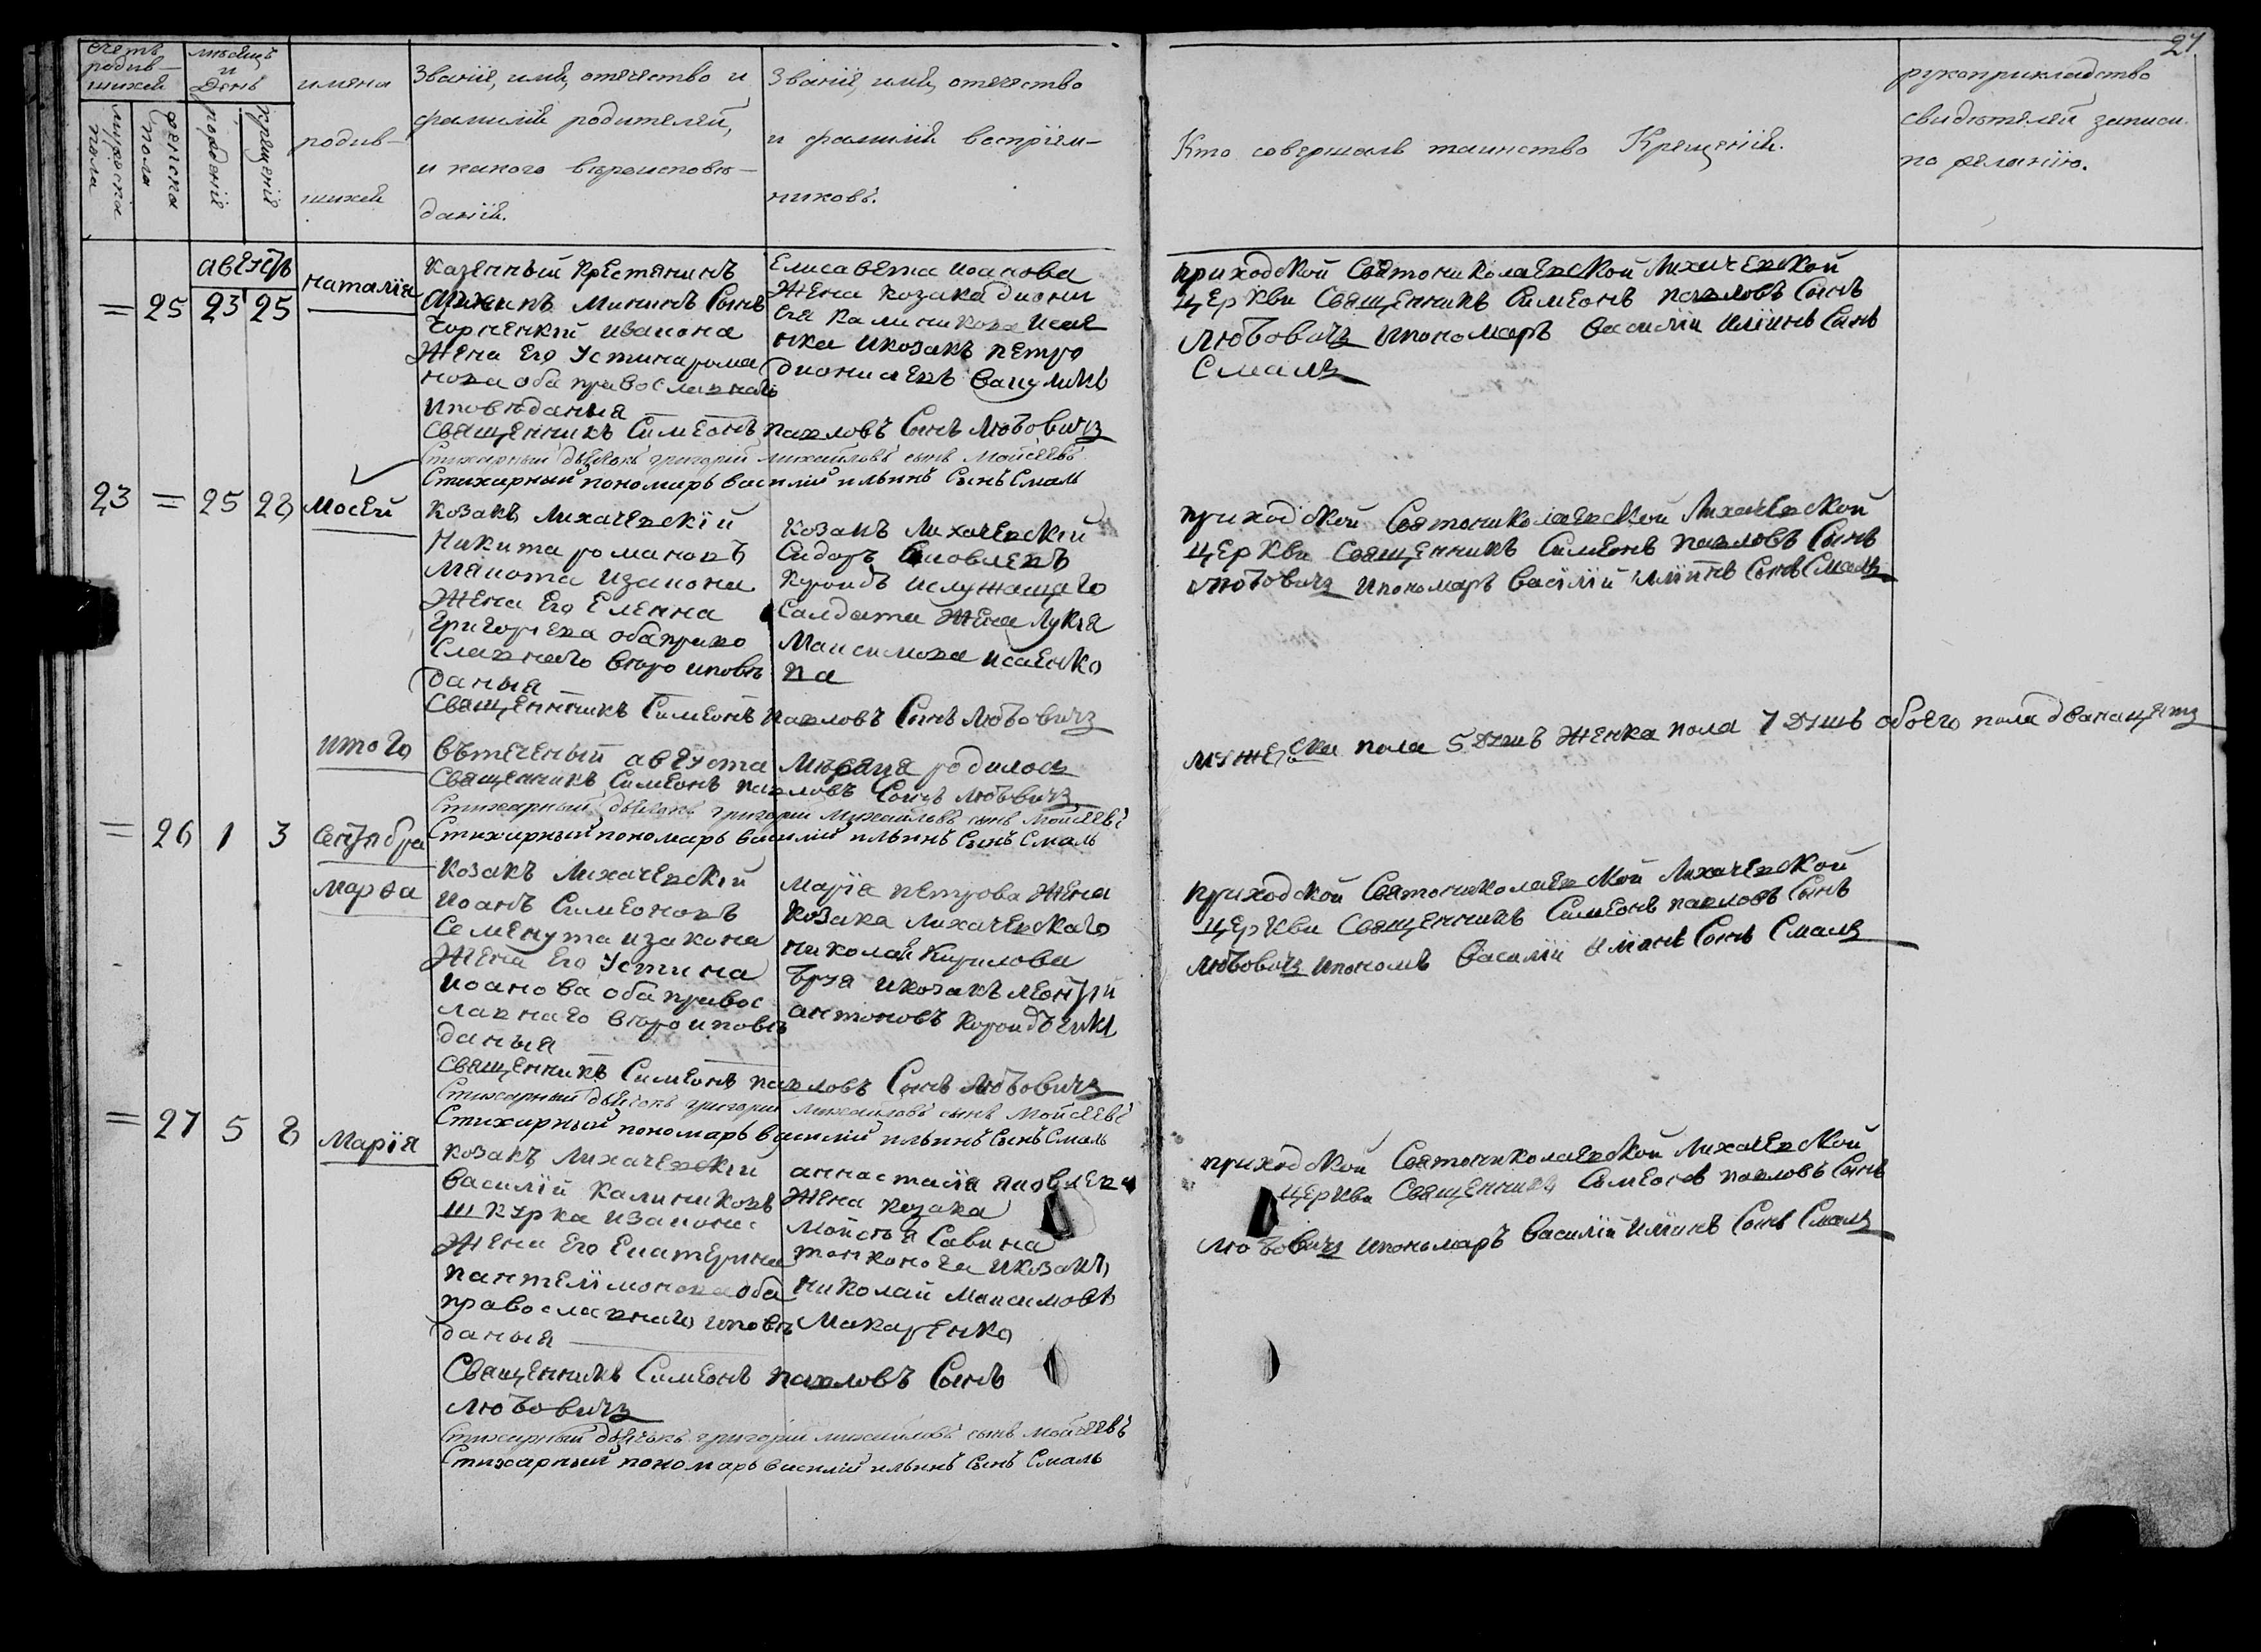 27
счетъ родив-
шихся
мѣсяцъ
и
день
мужеска
пола
женска
пола
рожденія
крещенія
имена
родив-
шихся
Званіе, имя, отечество и
фамилія родителей,
и какого вѣроисповѣ-
данія.
Званіе, имя, отечество
и фамилія воспріем-
никовъ.
Кто совершалъ таинство Крещенія.
рукоприкладство
свидѣтелей записи
по желанію.
августъ
= 25 23 25
наталія
Казенный крестянинъ
Архипъ Мининъ Сынъ
Чорненкій изаконна
Жена Его Устина рома
нова оба православнаго
иповѣданыя
Елисавета иоанова
Жена Козака диони
сия Калиникова Исае
нка икозакъ петро
дионисиевъ Вакуликъ
приходской Святониколаевской Лихачевской
церкви Священникъ Симеонъ павловъ Сынъ
Любовичъ ипономаръ Василій Иліинъ Сынъ
Смаль
Священникъ Симеонъ павловъ Сынъ Любовичъ
Стихарный дьячокъ григорий михайловъ сынъ Мойсеевъ
Стихарный пономарь василий ильинъ Сынъ Смаль
23 = 25 28 Мосей
Козакъ Лихачевскій
Никита романовъ
Манота изакона
Жена Его Еленна
григориева оба право
Славнаго вѣро иповѣ
даныя
Козакъ Лихачевскій
Сидоръ Яковлевъ
Короидъ ислужащаго
Салдата Жена Лукія
Максимова исаенко
ва
приходской Святониколаевской Лихачевской
церкви Священникъ Симеонъ павловъ Сынъ
Любовичъ ипономаръ Василій Иліинъ Сынъ Смаль
Священникъ Симеонъ павловъ Сынъ Любовичъ
итого
вътеченый августа Мѣсяця родилось
мужеска пола 5 душъ женка пола 7 душъ обоего пола дванацять
Священникъ Симеонъ павловъ Сынъ Любовичъ
Стихарный дьячокъ григорий михайловъ сынъ Мойсеевъ
Стихарный пономарь василий ильинъ Сынъ Смаль
= 26 1 3 Сентября
Марѳа
Козакъ Лихачевскій
Иоанъ Симеоновъ
Семенута изакона
Жена Его Устина
иоанова оба правос
лавнаго вѣро иповѣ
даныя
Марія петрова Жена
Козака Лихачевскаго
николая Кирилова
Бузя икозакъ леонтій
антоновъ Короидъчикъ
приходской Святониколаевской Лихачевской
церкви Священникъ Симеонъ павловъ Сынъ
Любовичъ ипономъ Василій Иліинъ Сынъ Смаль
Священникъ Симеонъ павловъ Сынъ Любовичъ
Стихарный дьячокъ григорий михайловъ сынъ Мойсеевъ
Стихарный пономарь василий ильинъ Сынъ Смаль
= 27 5 8 Марія
Козакъ Лихачевскій
Василій Калиниковъ
Шкурка изаконна
Жена Его Екатерина
пантеліимонова оба
православнаго иповѣ
даныя
аннастасія яковлева
Жена Козака
Мойсѣя Савина
тонконога икозакъ
николай Максимовъ
Макаренко
приходской Святониколаевской Лихачевской
церкви Священникъ Симеонъ павловъ Сынъ
Любовичъ ипономаръ Василій Иліинъ Сынъ Смаль
Священникъ Симеонъ павловъ Сынъ
Любовичъ
Стихарный дьячокъ григорий михайловъ сынъ Мойсеевъ
Стихарный пономарь василий ильинъ Сынъ Смаль